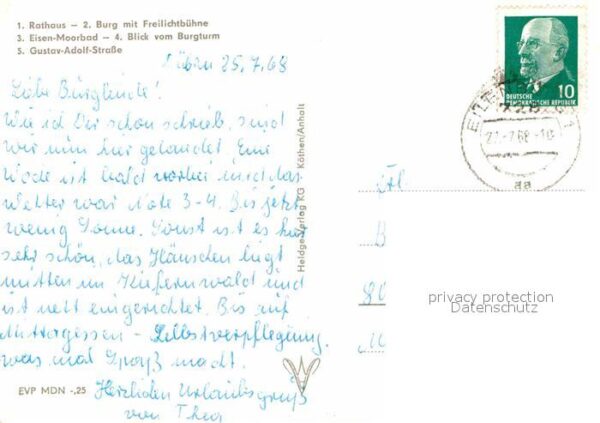 1. Rathaus — 2. Burg mit Freilichtbühne
3. Eisen-Moorbad — 4. Blick vom Burgturm
5. Gustav-Adolf-Straße
25.7.68
Liebe Burgleute!
Wie ich Dir schon schrieb, sind
wir nun hier gelandet. Eine
Woche ist bald vorbei und das
Wetter war Note 3-4. Bis jetzt
wenig Sonne. Sonst ist es hier
sehr schön, das Häuschen liegt
mitten im Kiefernwald und
ist nett eingerichtet. Bis auf
Mittagessen - Selbstverpflegung.
was mal Spaß macht.
Herzlichen Urlaubsgruß
von Thea
EVP MDN -,25
Heldge-Verlag KG Köthen/Anhalt
10
DEUTSCHE
DEMOKRATISCHE REPUBLIK
7.68
aa
privacy protection
Datenschutz